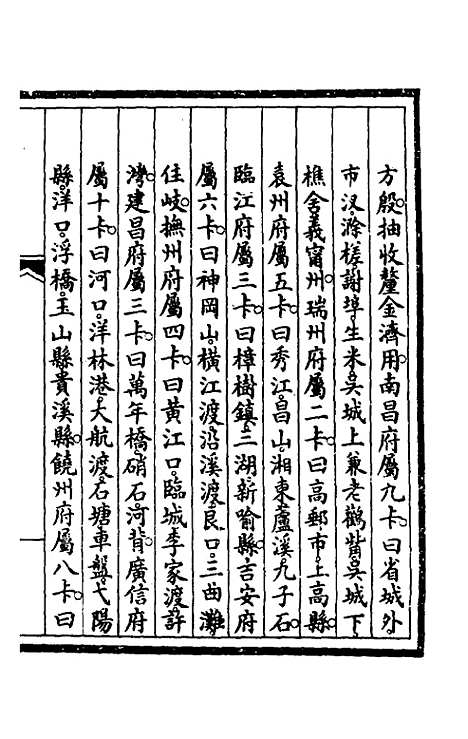 方殷抽收釐金濟用南昌府屬九卡曰省城外
市汊滁槎謝埠生米吳城上兼老鸛觜吳城下
樵舍義甯州瑞州府屬二卡曰高郵市上高縣
袁州府屬五卡曰秀江昌山湘東蘆溪九子石
臨江府屬三卡曰樟樹鎮三湖新喻縣吉安府
屬六卡曰神岡山橫江渡沿溪渡良口三曲灘
住岐撫州府屬四卡曰黃江口臨城李家渡許
灣建昌府屬三卡曰萬年橋硝石河背廣信府
屬十卡曰河口洋林港大航渡石塘車盤弋陽
縣洋口浮橋玉山縣貴溪縣饒州府屬八卡曰